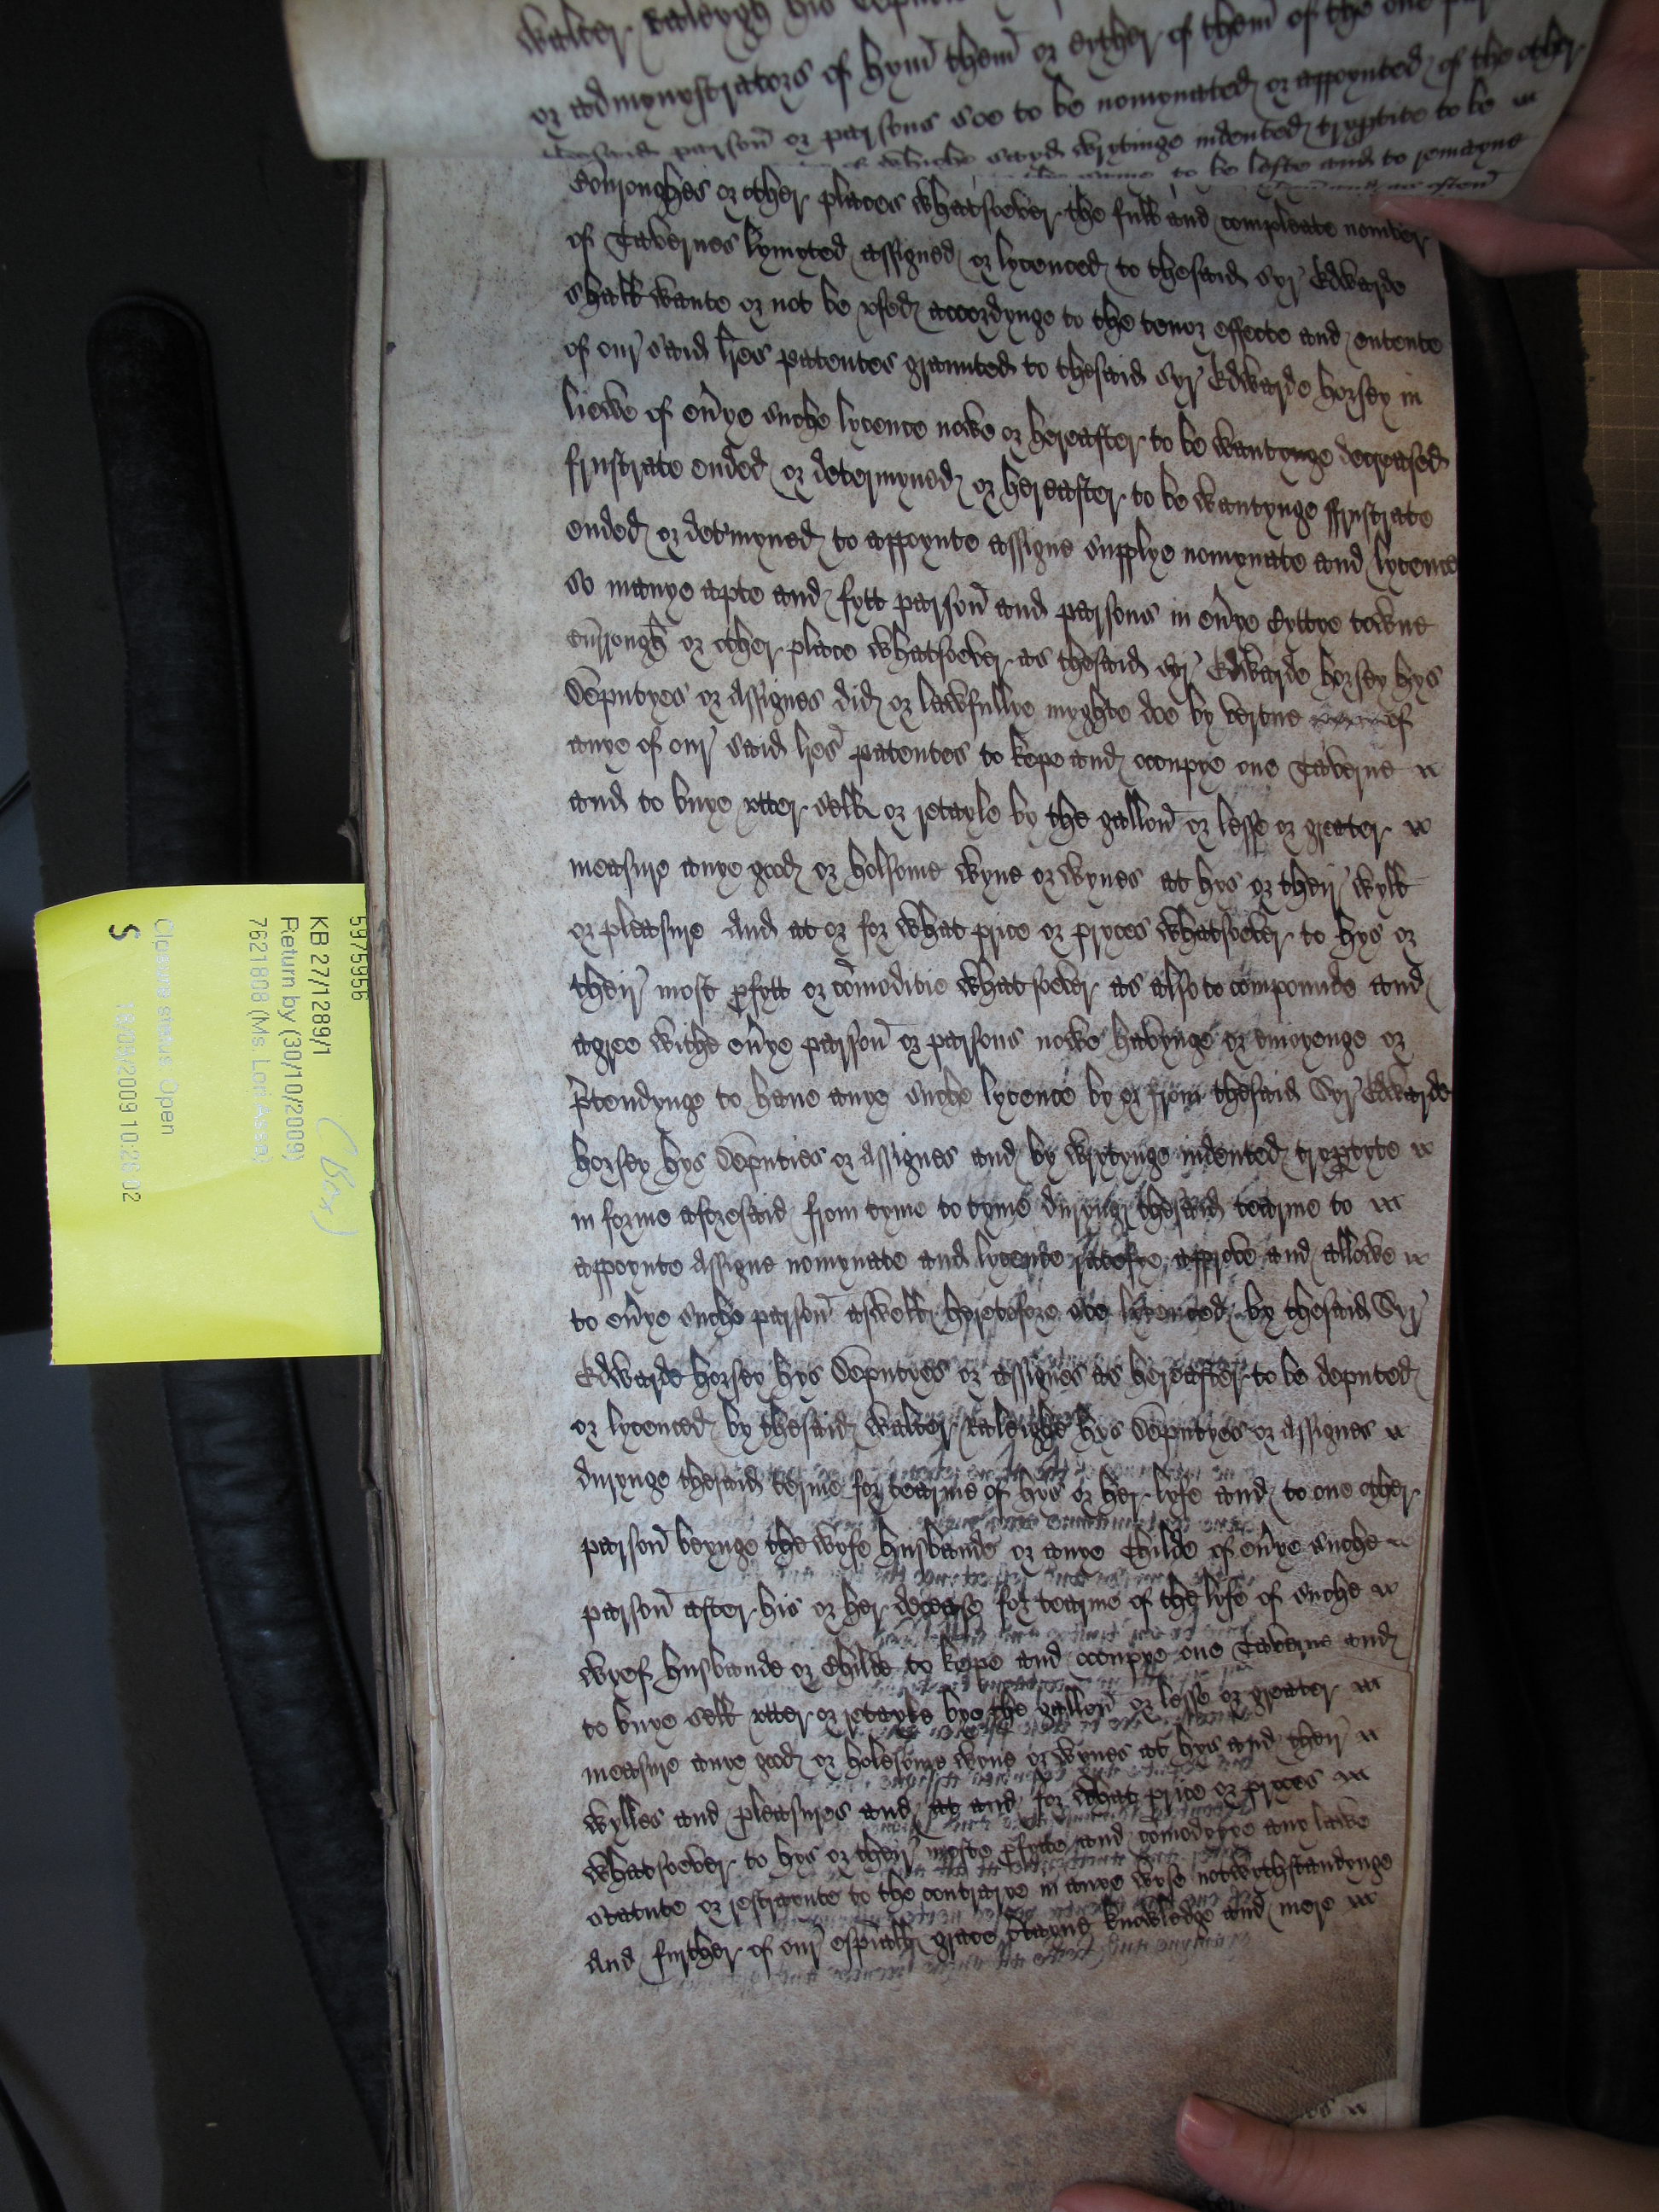 Walter Raleygh his
or admynystrators of hym them or either of them of the one
parson or parsons soe to be nomynated or appoynted of the other
of whiche sayd wrytinge indented tryptite to be
to be lefte and to remayne
Borroughes or other places whatsoever the full and compleate nomber
of Tavernes lymyted assigned or lycenced to thesaid Syr Edwarde
shall wante or not be used accordynge to the tenor effecte and entente
of our said lres patentes graunted to thesaid Syr Edwarde Horsey in
liewe of evrye suche lycence nowe or hereafter to be wantynge decreased
frustrate ended or determyned or hereafter to be wantynge ffrustrate
ended or detmyned to appoynte assigne supplye nomynate and lycence
so manye apte and fytt parson and parsons in evrye Cyttye towne
Burrough or other place whatsoever as thesaid Syr Edwarde horsey hys
Deputyes or Assignes did or lawfullye myghte doe by vertue of
anye of our said lres patentes to kepe and occupye one Taverne
and to buye utter sell or retayle by the gallon or lesse or greater
measure anye good or holsome wyne or wynes at hys or their wyll
or pleasure And at or for what price or pryces whatsoever to hys or
their most pfytt or comoditie whatsoever as also to compounde and
agree withe evrye parson or parsons nowe havynge or enioyenge or
ptendynge to have anye suche lycence by or from thesaid Syr Edwarde
horsey hys Deputies or Assignes and by wrytynge indented tryptyte
in forme aforesaid from tyme to tyme durynge thesaid tearme to
appoynte Assigne nomynate and lycence ratefye approve and allowe
to evrye suche parson aswell heretofore soe lycenced by thesaid Syr
Edwarde horsey hys Deputyes or assignes as hereafter to be deputed
or lycenced by thesaid Walter Raleighe hys Deputyes or Assignes
durynge thesaid terme for tearme of hys or her lyfe and to one other
parson beynge the wyfe husbande or anye Childe of evrye suche
parson after his or her decease for tearme of the lyfe of suche
wyef husbande or Childe to kepe and occupye one Taverne and
to buye sell utter or retayle bye the gallon or lesse or greater
measure anye good or holesome wyne or wynes at hys and their
wylles and pleasures and at and for what price or pryces
whatsoever to hys or their moste pfytte and comodytye any lawe
statute or restraynte to the contrarye in anye wyse notwythstandynge
And further of our espiall grace ctayne knowledge and more
5975956
KB 27/1289/1
Return by (30/10/2009)
7621808 (Ms. Lori
(Box)
Closure status Open
S
10:26:02